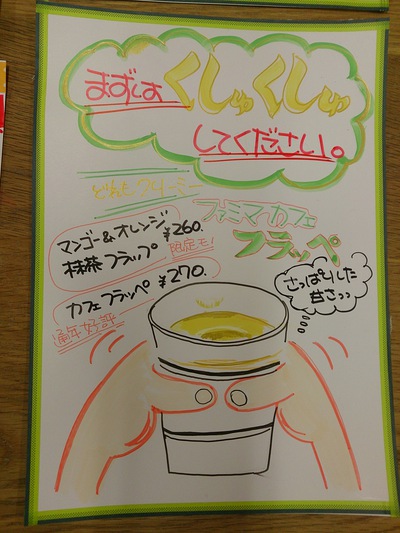 まずは くしゅくしゅ
してください。
どれも クリーミー
ファミマ カフェ
フラッペ
マンゴー&オレンジ
抹茶フラップ ¥260.
限定モノ!
カフェフラッペ ¥270.
通年好評
さっぱりした
甘さっっ